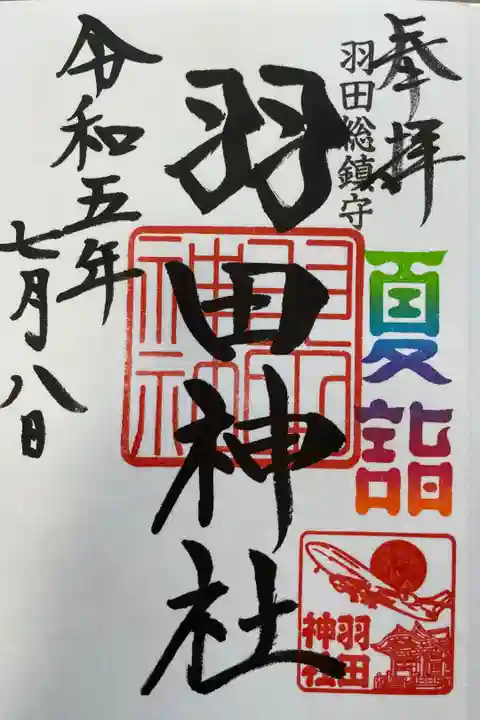 奉拝
羽田総鎮守
夏詣
羽田神社
羽田
神社
令和五年
七月八日